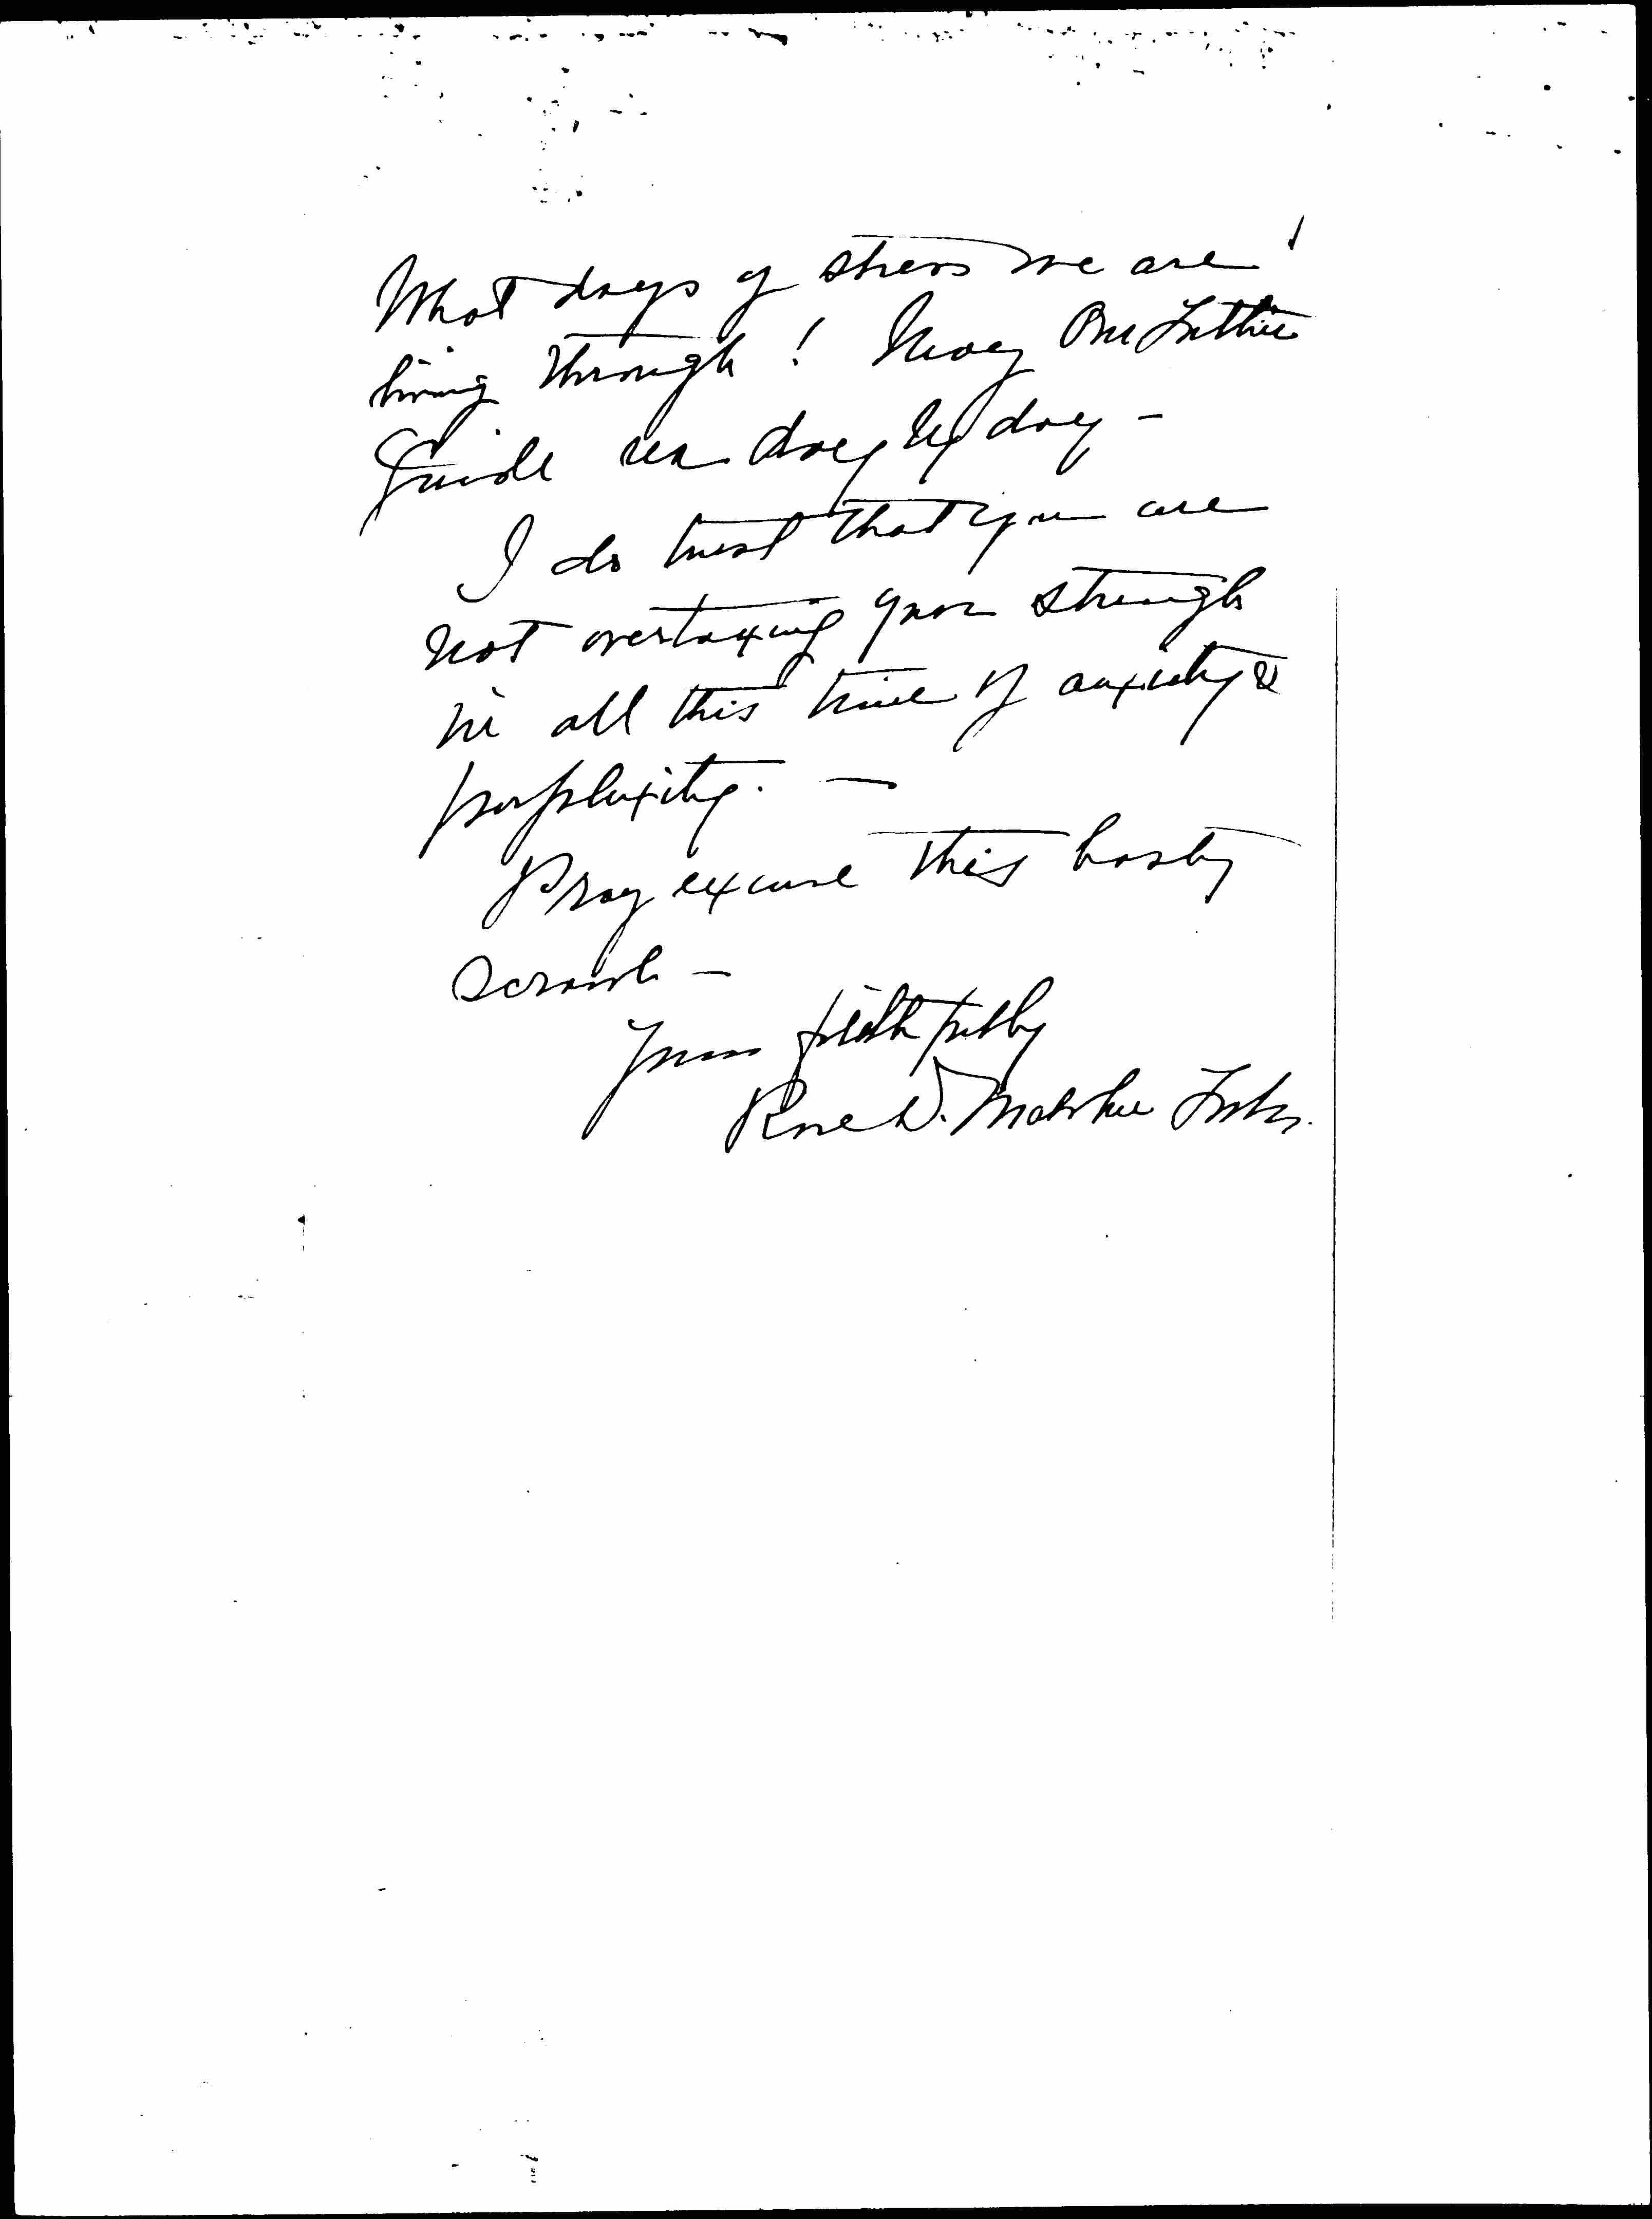 What days of stress we are
living through! May Our Father
Guide us day by day -
I do trust that you are
not overtaxing your strength
in all this time of anxiety &
perplexity. -
Pray excuse this hasty
scrawl -
Yours faithfully
Rose D.